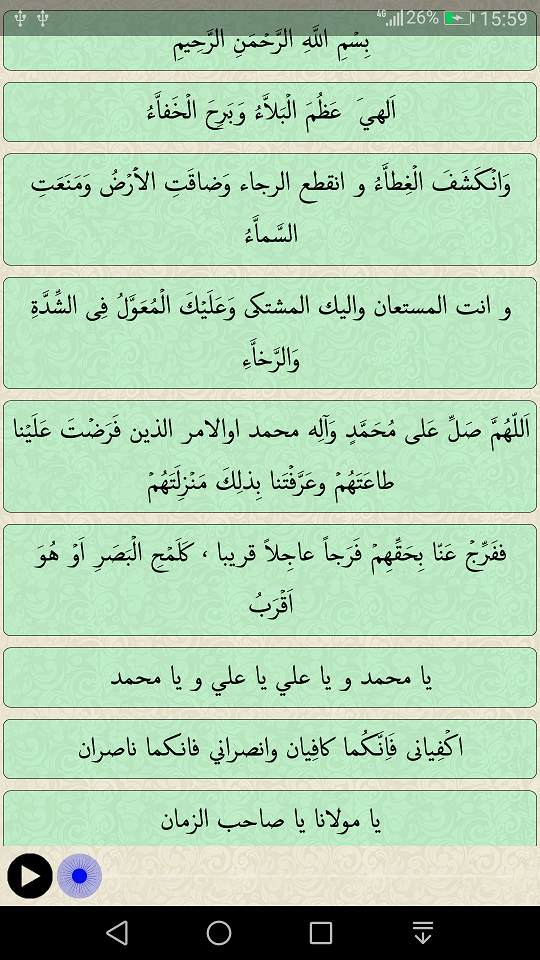 4G 26% 15:59
بِسْمِ اللَّهِ الرَّحْمَنِ الرَّحِيمِ
اَلهيَ عَظُمَ الْبَلاَّءُ وَبَرِحَ الْخَفاَّءُ
وَانْكَشَفَ الْغِطاَّءُ و انقطع الرجاء وَضاقَتِ الاَرْضُ وَمَنَعَتِ
السَّماَّءُ
و انت المستعان واليك المشتكى وَعَلَيْكَ الْمُعَوَّلُ فِى الشِّدَّةِ
وَالرَّخاَّءِ
اَللّهُمَّ صَلِّ عَلى مُحَمَّدٍ وَآلِه محمد اوالامر الذين فَرَضْتَ عَلَيْنا
طاعَتَهُمْ وعَرَّفْتَنا بِذلِكَ مَنْزِلَتَهُمْ
ففَرِّجْ عَنّا بِحَقِّهِمْ فَرَجاً عاجِلاً قريبا ، كَلَمْحِ الْبَصَرِ اَوْ هُوَ
اَقْرَبُ
يا محمد و يا علي يا علي و يا محمد
اكْفِيانى فَاِنَّكُما كافِيان وانصراني فانكما ناصران
يا مولانا يا صاحب الزمان